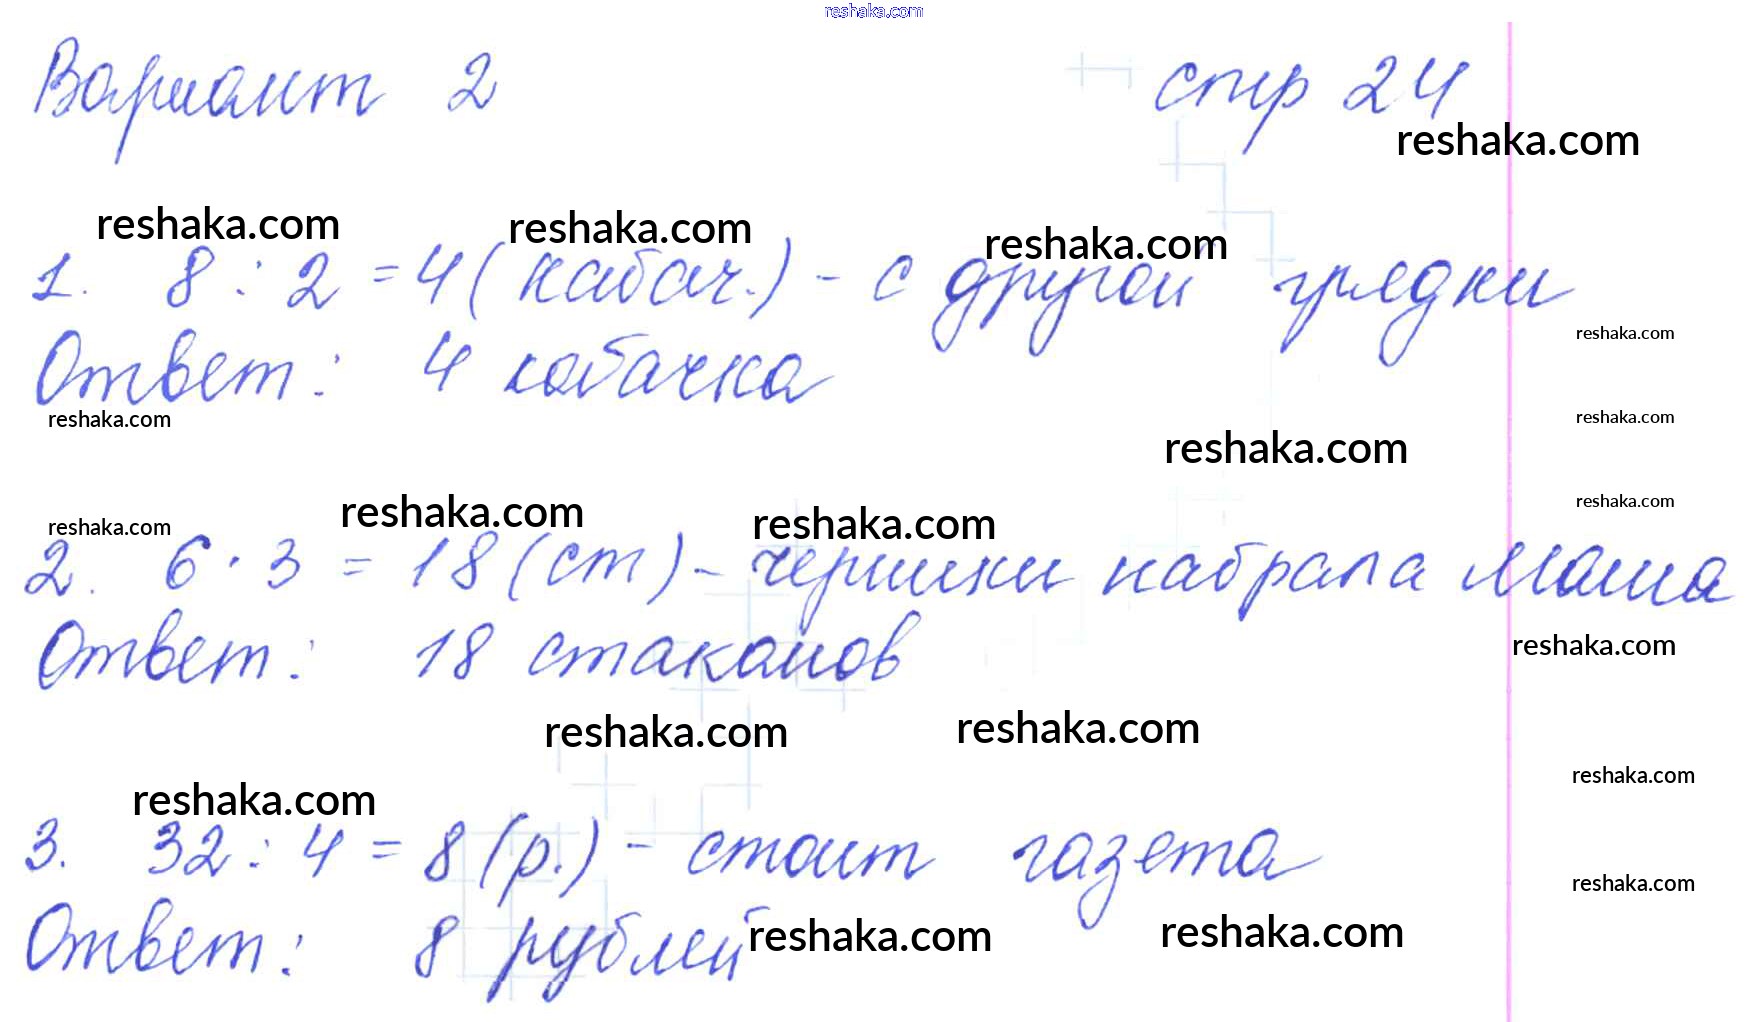 reshaka.com
Вариант 2 стр 24
reshaka.com
reshaka.com reshaka.com reshaka.com
1. 8 : 2 = 4 (кабач.) - с другой грядки
reshaka.com
Ответ: 4 кабачка
reshaka.com reshaka.com
reshaka.com
reshaka.com reshaka.com reshaka.com reshaka.com
2. 6 · 3 = 18 (ст) - черники набрала Маша
Ответ: 18 стаканов reshaka.com
reshaka.com reshaka.com
reshaka.com
reshaka.com
3. 32 : 4 = 8 (р.) - стоит газета
reshaka.com
Ответ: 8 рублей reshaka.com reshaka.com